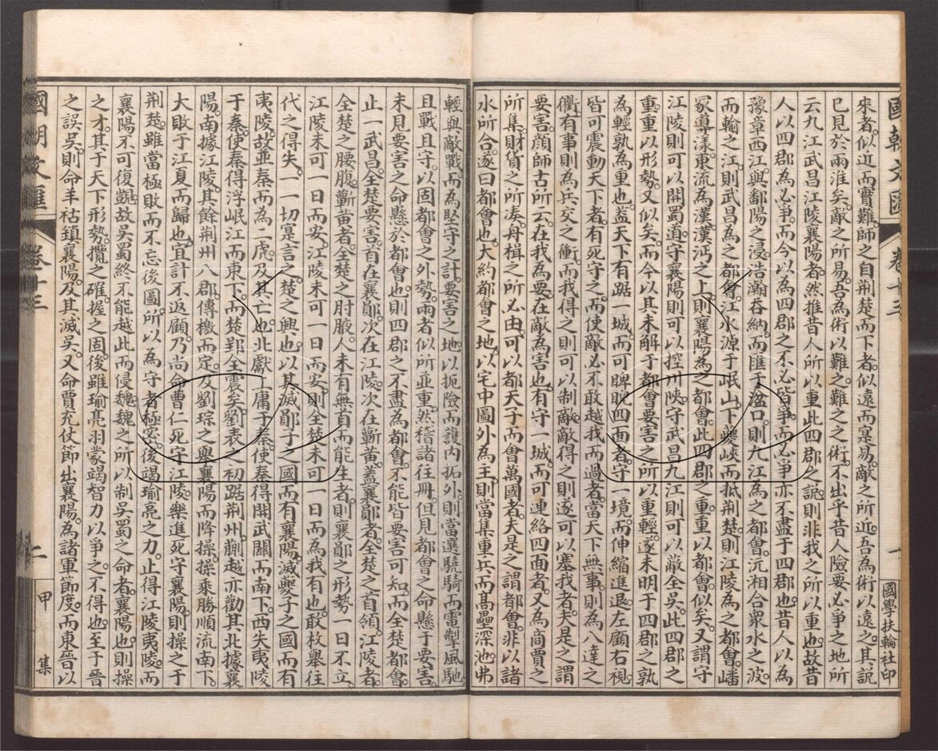 國朝文匯 卷十三 一 國學扶輪社印
來者。似近而實難。師之自荆楚而下者。似遠而寔易。敵之所近。吾為術以遠之。其說
已見於兩淮矣。敵之所易。吾為術以難之。難之之術。不出乎昔人險要必爭之地。所
云九江武昌江陵襄陽者。然推昔人所以重此四郡之說。則非我之所以重也。故昔
人以四郡為必爭。而今以為四郡之不必皆爭。而必爭亦不盡于四郡也。昔人以為
豫章西江。與鄱陽之浸。浩瀚吞納。而匯于湓口。則九江為之都會。沅湘合衆水之波。
而輸之江。則武昌為之都會。江水源于岷山。下夔峽而抵荆楚。則江陵為之都會。嶓
冢導漾。東流為漢。漢沔之上。則襄陽為之都會。此四郡之重。重以都會。似矣。又謂守
江陵則可以開蜀道。守襄陽則可以控川陝。守武昌九江則可以蔽全吳。此四郡之
重。重以形勢。又似矣。而今以其未解于都會要害之所以重輕。遂未明于四郡之孰
為輕孰為重也。蓋天下有踞一城。而可睥睨四面者。守一境。而伸縮進退。左顧右視。
皆可震動天下者。有死守之。而使敵必不敢越我而過者。當天下無事。則為八達之
衢。有事則為兵交之衝。而我得之則可以制敵。敵得之則遂可以塞我者。夫是之謂
要害。顏師古所云在我為要。在敵為害也。有守一城。而可連絡四面者。又為商賈之
所集。財貨之所湊。舟楫之所必由。可以都天子而會萬國者。夫是之謂都會。非以諸
水所合。遂曰都會也。大約都會之地。以宅中圖外為主。則當集重兵而高壘深池。弗
輕與敵戰。而為堅守之計。要害之地。以扼險而護內拓外。則當選驍騎而電掣風馳。
且戰且守。以固都會之外勢。兩者似所並重。然稽諸往冊。但見都會之命懸于要害。
未見要害之命懸於都會也。則四郡之不盡為都會。不能皆要害可知。而全楚都會。
止一武昌。全楚要害。首在襄鄖。次在江陵。次在蘄黃。蓋襄鄖者。全楚之首領。江陵者。
全楚之腰腹。蘄黃者。全楚之肘腋。人未有無首而能生者。則襄鄖之形勢一日不立。
江陵未可一日而安。江陵未可一日而安。則全楚未可一日而為我有也。敢枚舉往
代之得失。一一切寔言之。楚之興也。以其滅鄖子之國。而有襄陽。滅夔子之國。而有
夷陵。故並秦而為二虎。及其亡也。北獻上庸于秦。使秦得開武關而南下。西失夷陵
于秦。使秦得浮岷江而東下。而楚郢全震矣。劉表之初踞荆州。蒯越亦勸其北據襄
陽。南據江陵。其餘荆州八郡傳檄而定。及劉琮之舉襄陽而降操。操乘勝順流南下。
大敗于江夏而歸也。宜計不返顧。乃尚命曹仁死守江陵。樂進死守襄陽。則操之于
荆楚。雖當極敗而不忘後圖。所以為守者極密。後竭瑜亮之力。止得江陵夷陵。而
襄陽不可復覬。故吳蜀終不能越此而侵魏。魏之所以制吳蜀之命者。襄陽也。則操
之才。其于天下形勢。攬之確。握之固。後雖瑜亮羽蒙竭智力以爭之。不得也。至于晉
之誤吳。則命羊祜鎮襄陽。及其滅吳。又命賈充仗節出襄陽。為諸軍節度。而東晉以
國朝文匯 卷十三 二 甲集